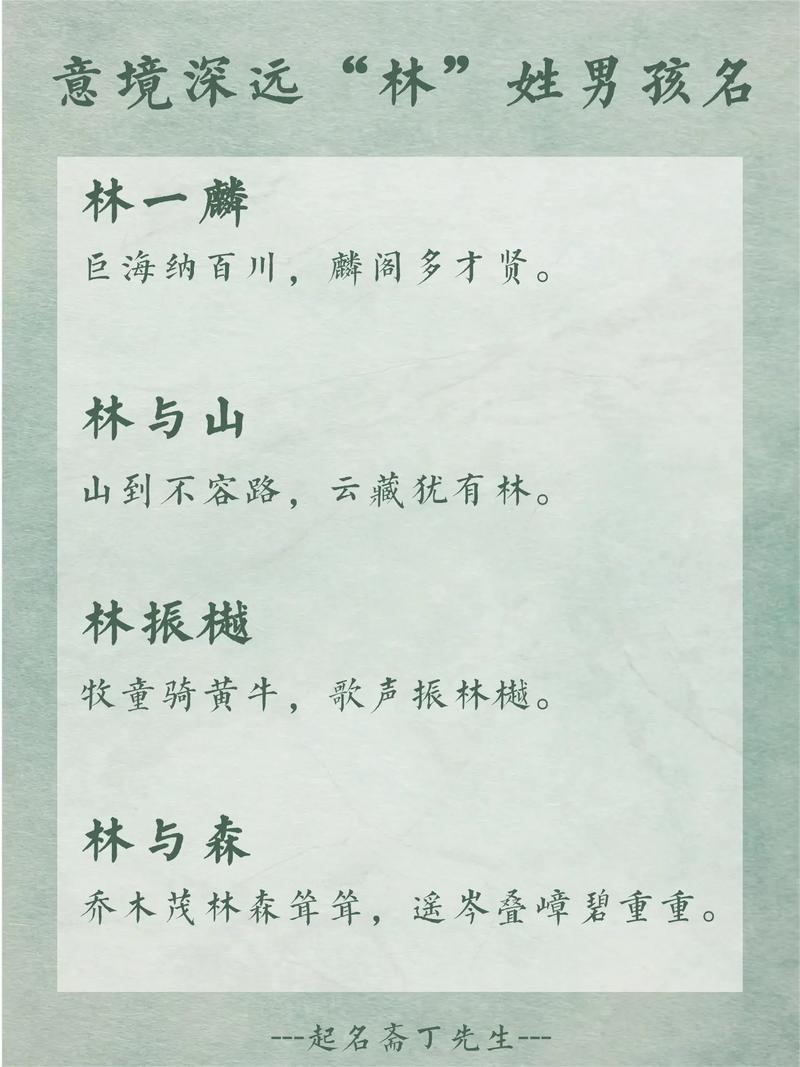 意境深远“林”姓男孩名
林一麟
巨海纳百川，麟阁多才贤。
林与山
山到不容路，云藏犹有林。
林振樾
牧童骑黄牛，歌声振林樾。
林与森
乔木茂林森耸耸，遥岑叠嶂碧重重。
---起名斋丁先生---